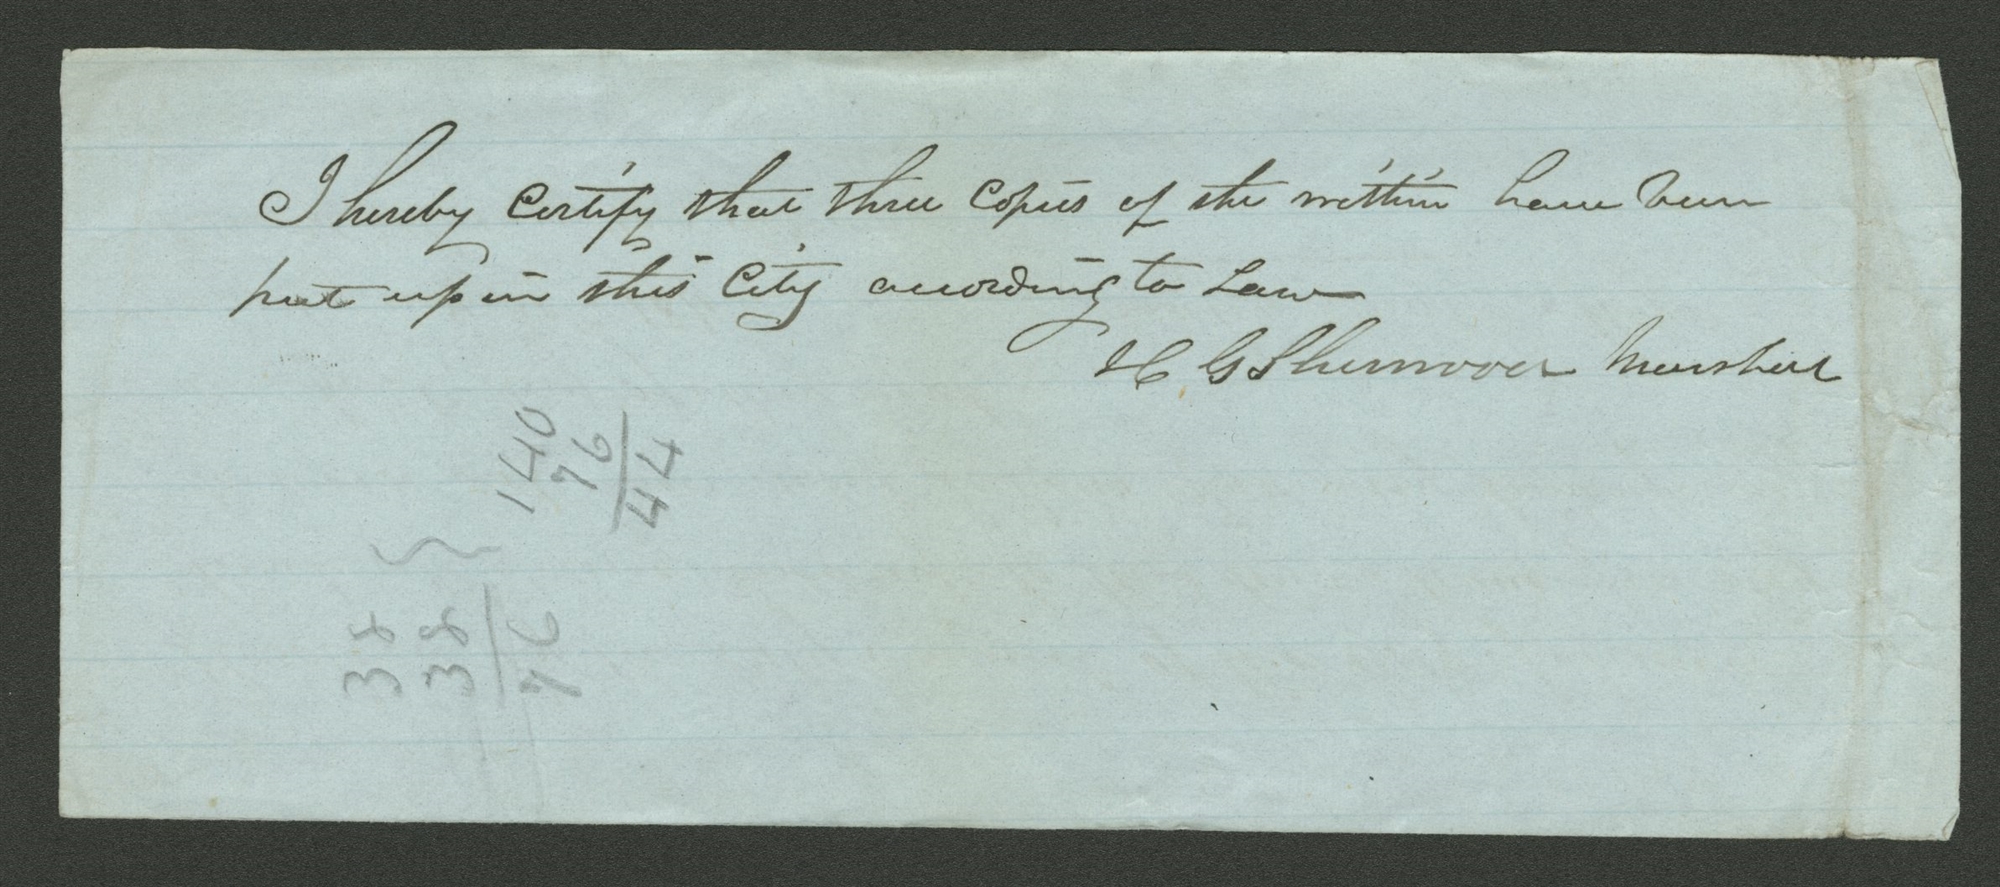 I hereby Certify that three Copies of the within have been
put up in this City according to Law
H G Marshall
140
76
44
38
38
76